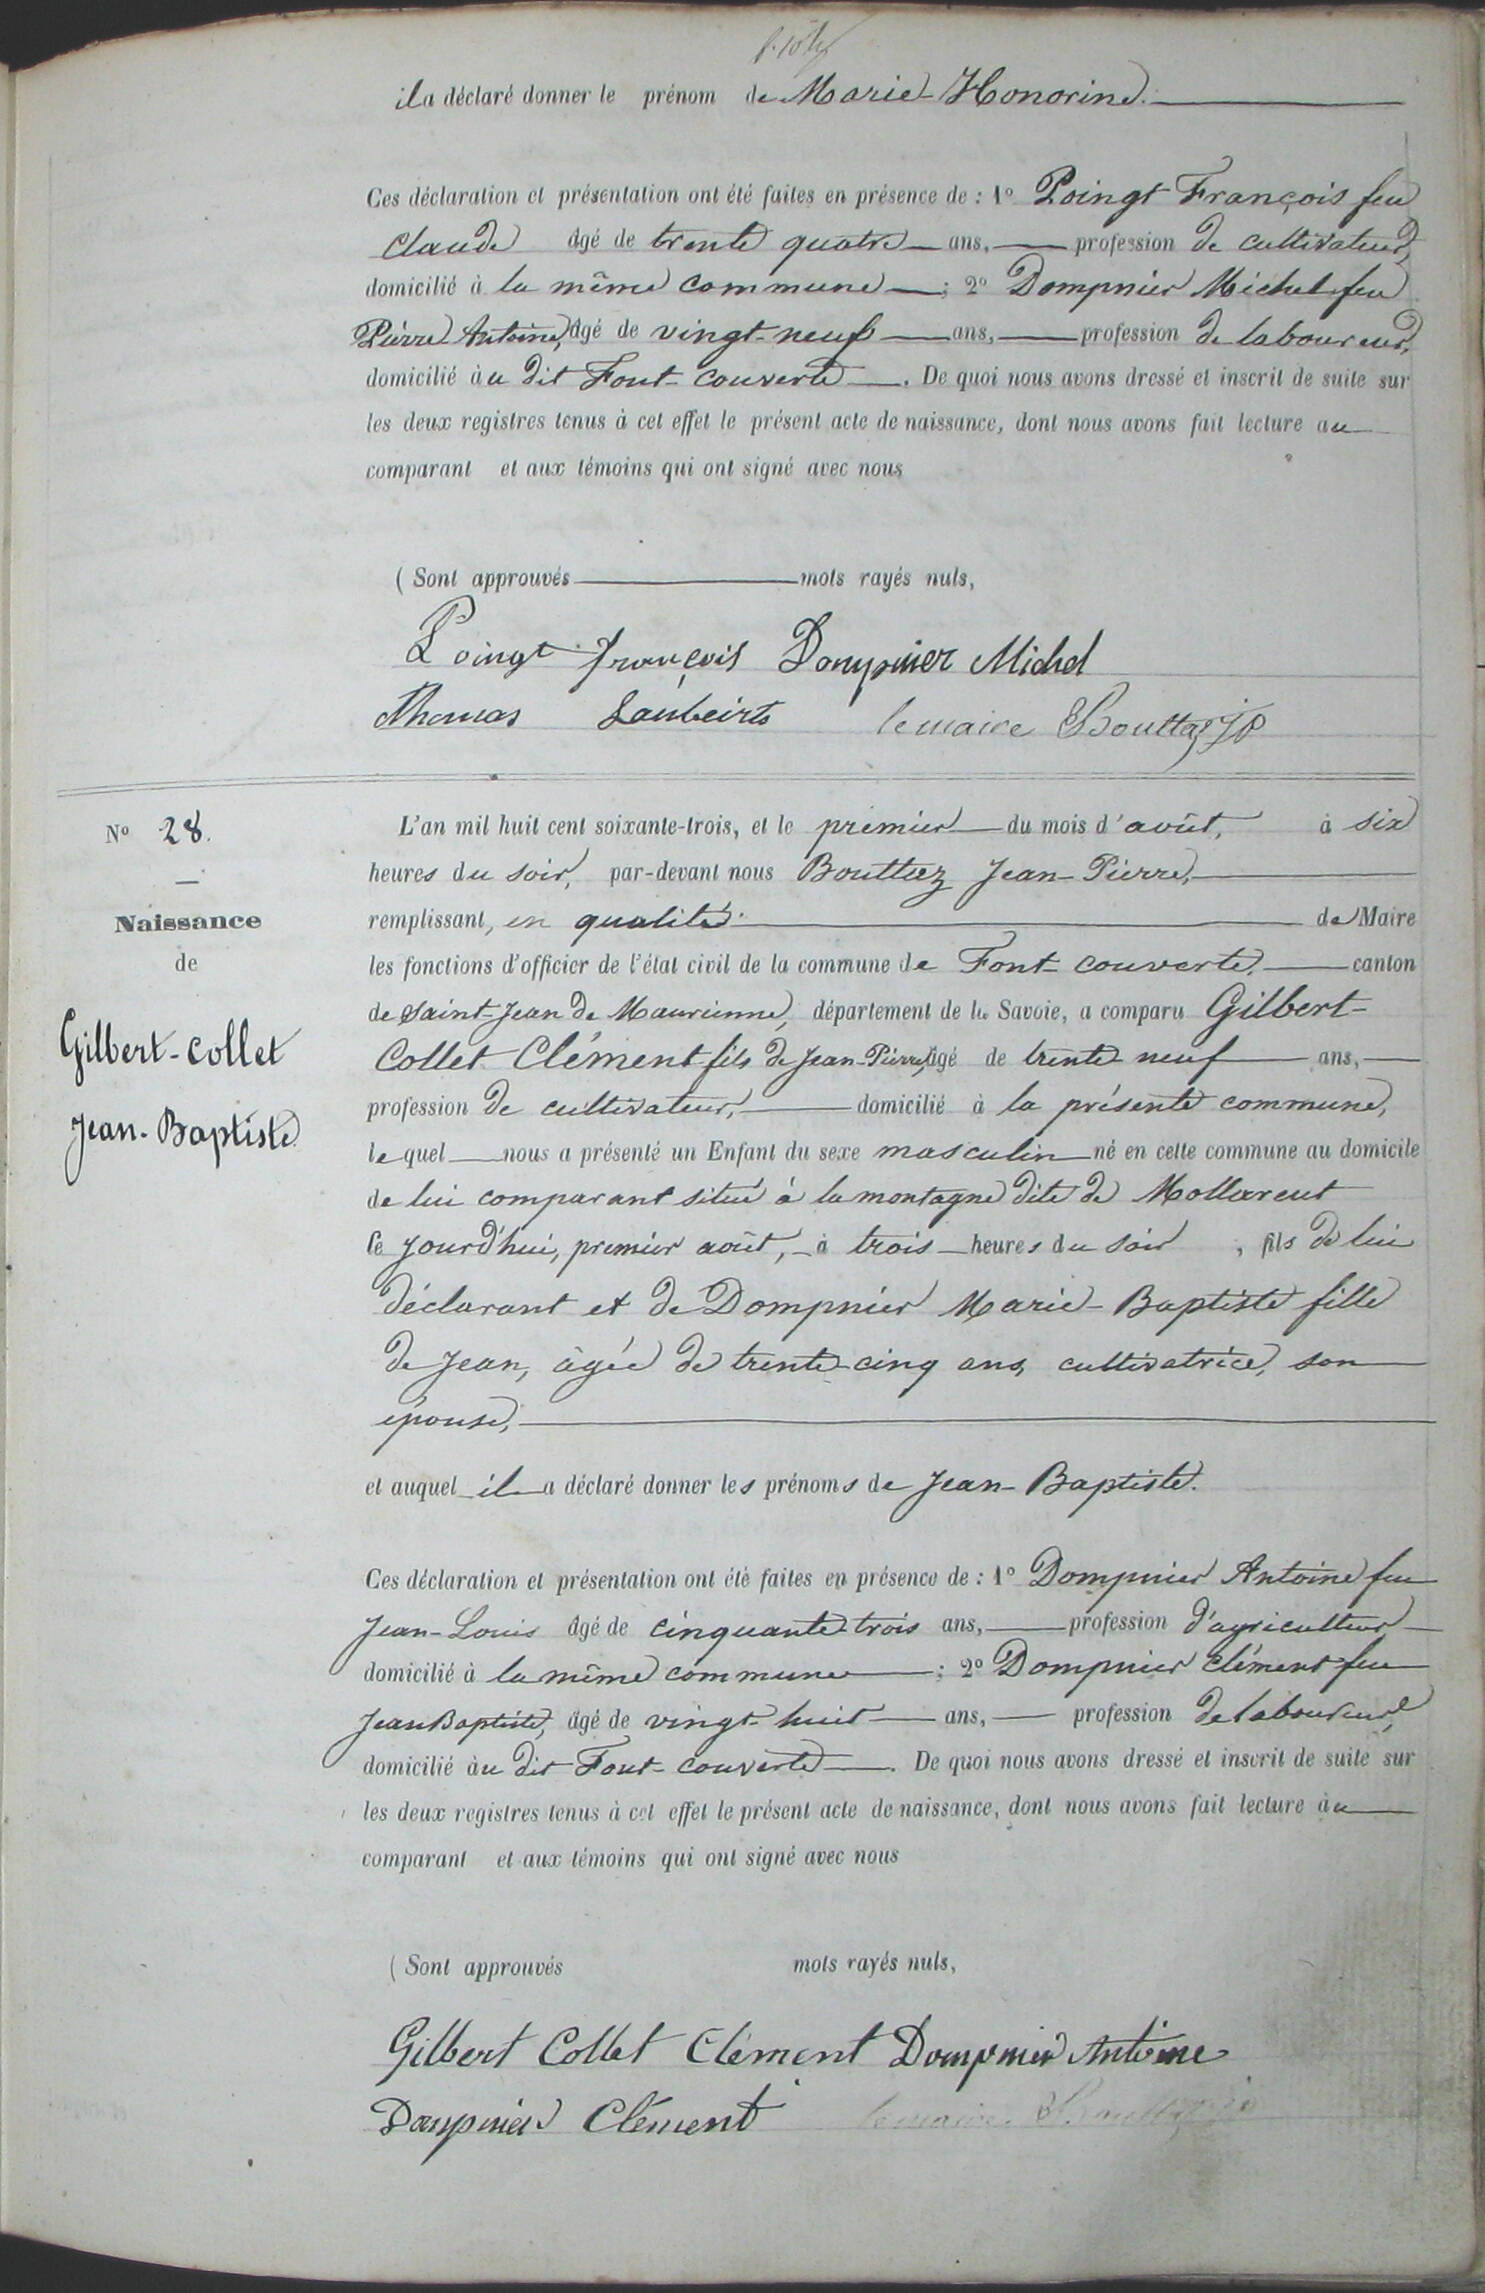 il a déclaré donner le prénom de Marie-Honorine.
Ces déclaration et présentation ont été faites en présence de : 1º Poingt François feu
Claude âgé de trente quatre ans, profession de cultivateur,
domicilié à la même commune ; 2º Dompnier Michel feu
Pierre Antoine, âgé de vingt-neuf ans, profession de laboureur,
domicilié àu dit Font-couverte. De quoi nous avons dressé et inscrit de suite sur
les deux registres tenus à cet effet le présent acte de naissance, dont nous avons fait lecture au
comparant et aux témoins qui ont signé avec nous
(Sont approuvés mots rayés nuls,
Poingt françois Dompnier Michel
Thomas le maire Bouttaz JP
Nº 28.
Naissance
de
Gilbert-Collet
Jean-Baptiste
L'an mil huit cent soixante-trois, et le premier du mois d'août, à six
heures du soir, par-devant nous Bouttaz Jean-Pierre,
remplissant, en qualité de Maire
les fonctions d'officier de l'état civil de la commune de Font-couverte, canton
de Saint-Jean de Maurienne, département de la Savoie, a comparu Gilbert-
Collet Clément fils de Jean-Pierre, âgé de trente neuf ans,
profession de cultivateur, domicilié à la présente commune,
lequel nous a présenté un Enfant du sexe masculin né en cette commune au domicile
de lui comparant situé à la montagne dite de Mollareut
ce jourd'hui, premier août, à trois heures du soir, fils de lui
déclarant et de Dompnier Marie-Baptiste fille
de Jean, âgée de trente-cinq ans, cultivatrice, son
épouse,
et auquel il a déclaré donner les prénoms de Jean-Baptiste.
Ces déclaration et présentation ont été faites en présence de : 1º Dompnier Antoine feu
Jean-Louis âgé de cinquante-trois ans, profession d'agriculteur
domicilié à la même commune ; 2º Dompnier Clément feu
Jean Baptiste, âgé de vingt-huit ans, profession de laboureur,
domicilié àu dit Font-couverte. De quoi nous avons dressé et inscrit de suite sur
les deux registres tenus à cet effet le présent acte de naissance, dont nous avons fait lecture àu
comparant et aux témoins qui ont signé avec nous
(Sont approuvés mots rayés nuls,
Gilbert Collet Clément Dompnier Antoine
Dompnier Clément le maire Bouttaz JP